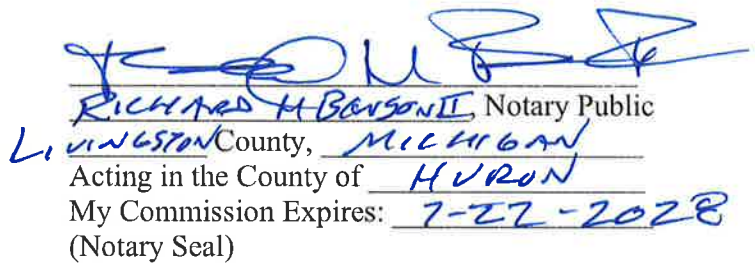 RICHARD H BENSON II, Notary Public
LIVINGSTON County, MICHIGAN
Acting in the County of HURON
My Commission Expires: 7-22-2028
(Notary Seal)